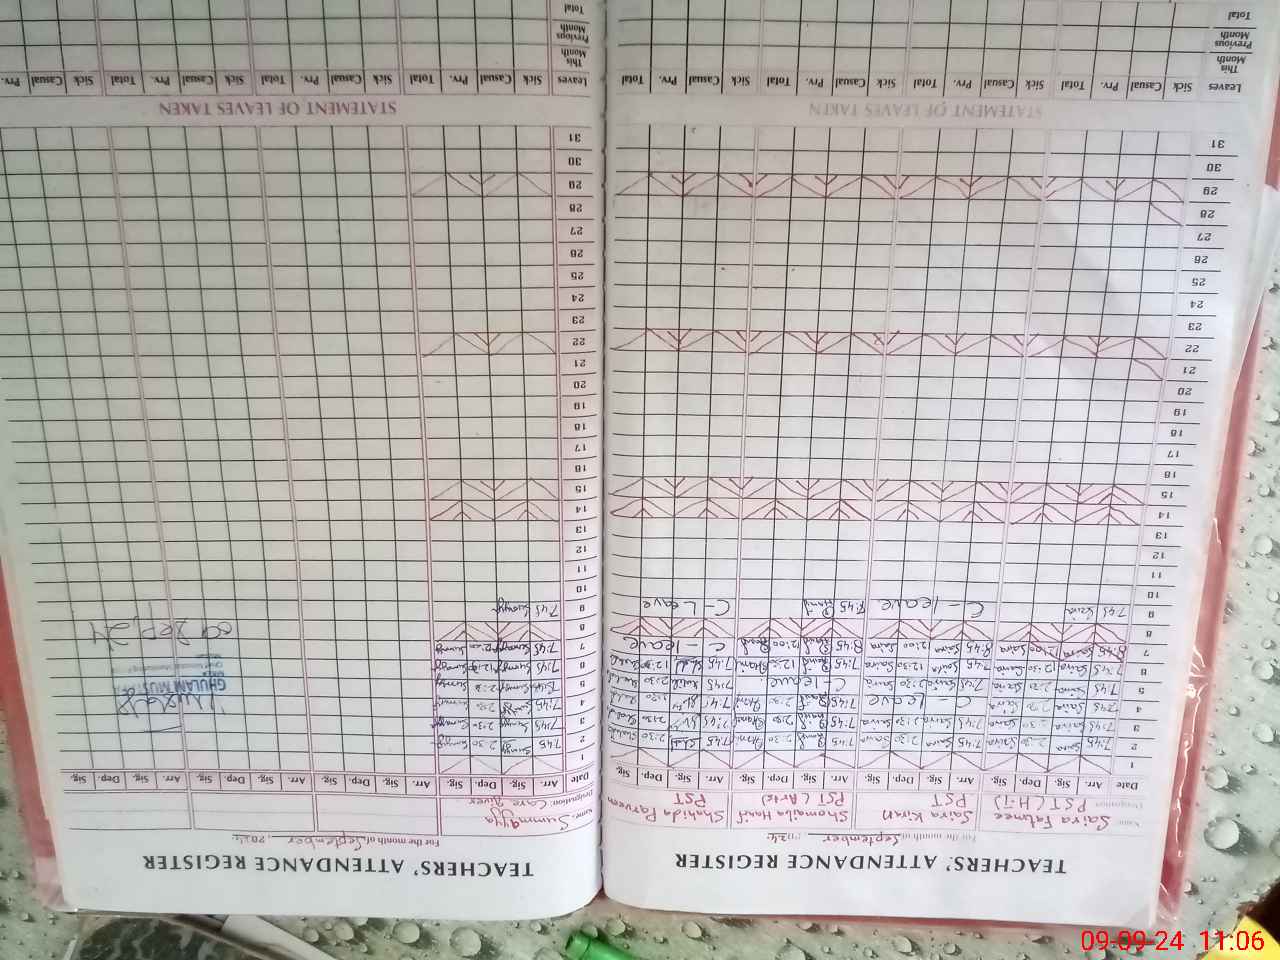 TEACHERS' ATTENDANCE REGISTER
For the month of September 2024
Name Saira Fatmee Saira Kiran Shomaila Hanif Shahida Parveen
Designation PST (H-T) PST PST (Arts) PST
Date Arr. Sig. Dep. Sig. Arr. Sig. Dep. Sig. Arr. Sig. Dep. Sig. Arr. Sig. Dep. Sig.
1
2 7:45 Saira 2:30 Saira 7:45 Saira 2:30 Saira 7:45 2:30 7:45 2:30
3 7:45 Saira 2:30 Saira 7:45 Saira 2:30 Saira 7:45 2:30 7:45 2:30
4 7:45 Saira 2:30 Saira C - Leave 7:45 2:30 7:45 2:30
5 7:45 Saira 2:30 Saira 7:45 Saira 2:30 Saira C - leave 7:45 2:30
6 7:45 Saira 12:30 Saira 7:45 Saira 12:30 Saira 7:45 12:30 7:45 12:30
7 8:45 Saira 2:00 Saira 8:45 Saira 2:00 Saira 8:45 2:00 C - leave
8
9 7:45 Saira C - leave 7:45 C - Leave
10
11
12
13
14
15
16
17
18
19
20
21
22
23
24
25
26
27
28
29
30
31
STATEMENT OF LEAVES TAKEN
Leaves Sick Casual Prv. Total Sick Casual Prv. Total Sick Casual Prv. Total Sick Casual Prv. Total
This Month
Previous Month
Total
TEACHERS' ATTENDANCE REGISTER
For the month of September, 2024
Name: Summayya
Designation: Care Giver
Date Arr. Sig. Dep. Sig. Arr. Sig. Dep. Sig. Arr. Sig. Dep. Sig. Arr. Sig. Dep. Sig.
1
2 7:45 2:30
3 7:45 2:30
4 7:45 2:30
5 7:45 2:30
6 7:45 12:30
7 7:45 2:00
8
9 7:45
GHULAM MUSTAFA
09 Sep, 24
10
11
12
13
14
15
16
17
18
19
20
21
22
23
24
25
26
27
28
29
30
31
STATEMENT OF LEAVES TAKEN
Leaves Sick Casual Prv. Total Sick Casual Prv. Total Sick Casual Prv. Total Sick Casual Prv.
This Month
Previous Month
Total
09-09-24 11:06